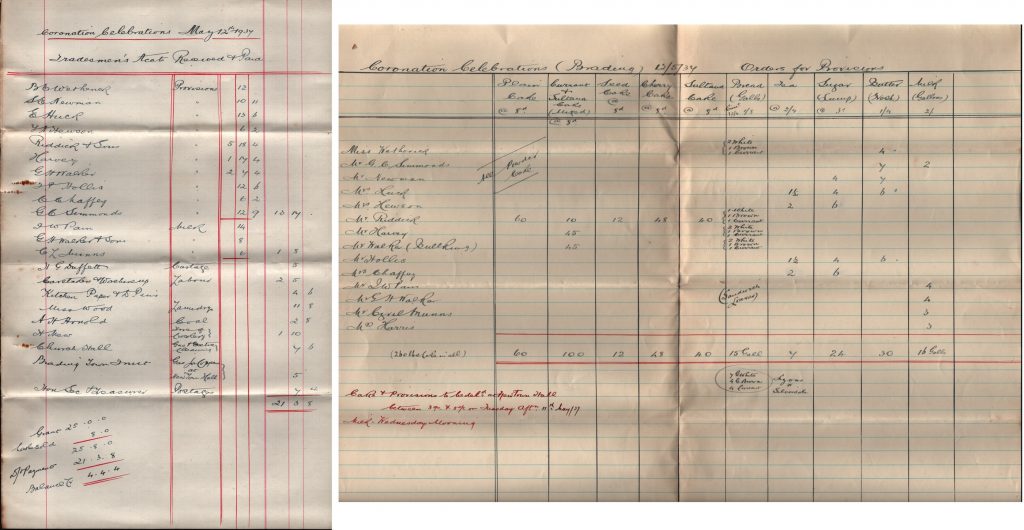 Coronation Celebrations May 12th 1937
Tradesmen's Accts Received & Paid
B C Wetherick Provisions 12
S E Newman " 10 11
E Huck " 13 6
Hewson " 6 2
Riddick & Sons " 5 18 4
Harvey " 1 14 4
G H Walker " 2 4 4
Hollis " 12 6
C Chaffey " 6 2
G C Simmonds " 12 9
J W Pain Milk 14
G H Walker & Sons " 8
C L Munns " 6 1 8
H G Duffett Cartage 5
Caretaker & Washers up Labour 2 5
Kitchen Paper & D Pins 4 6
Miss Wood Laundry 11 8
A H Arnold Coal 2 8
H New 1 10
Church Hall
Brading Town Trust Gas for
at
New Town Hall 5
Hon Sec & Treasurer Postages 4
21 3 8
Grant 25 . 0 . 0
8 . 0
25 . 8 . 0
21 . 3 . 8
Balance 4 . 4 . 4
Coronation Celebrations (Brading) 12/5/37 Orders for Provisions
Plain Cake @ 8d
Currant & Sultana Cake (Mixed) @ 8d
Seed Cake @ 8d
Cherry Cake @
Sultana Cake @ 8d
Bread (Galls)
Tea @ 2/4
Sugar (Lump) @
Butter 1/4
Milk (Gallons) 2/
Miss Wetherick 2 White 1 Brown 1 Currant 4
Mr G C Simmonds 4 2
Mr Newman 4
Powder
Mr Huck 1½ 4 6
Mrs Hewson 2 6
Mr Riddick 60 10 12 48 40 1 White 1 Brown 1 Currant
Mr Harvey 45 2 White 1 Brown 1 Currant
Mr Walker (Bullring) 45 2 White 1 Brown 1 Currant
Mr Hollis 1½ 4 6
Mrs Chaffey 2 6
Mr J W Pain 4
Mr G H Walker Sandwich 4
Mr Cyril Munns 3
Mrs Harris 3
(260 lbs in all) 60 100 12 48 40 15 Gall 7 24 30 Galls
7 White
4 Brown
4 Currant
Lyons
Cakes & Provisions to be deld at New Town Hall
between on Tuesday Aftn 11th May/37
Milk. Wednesday Morning